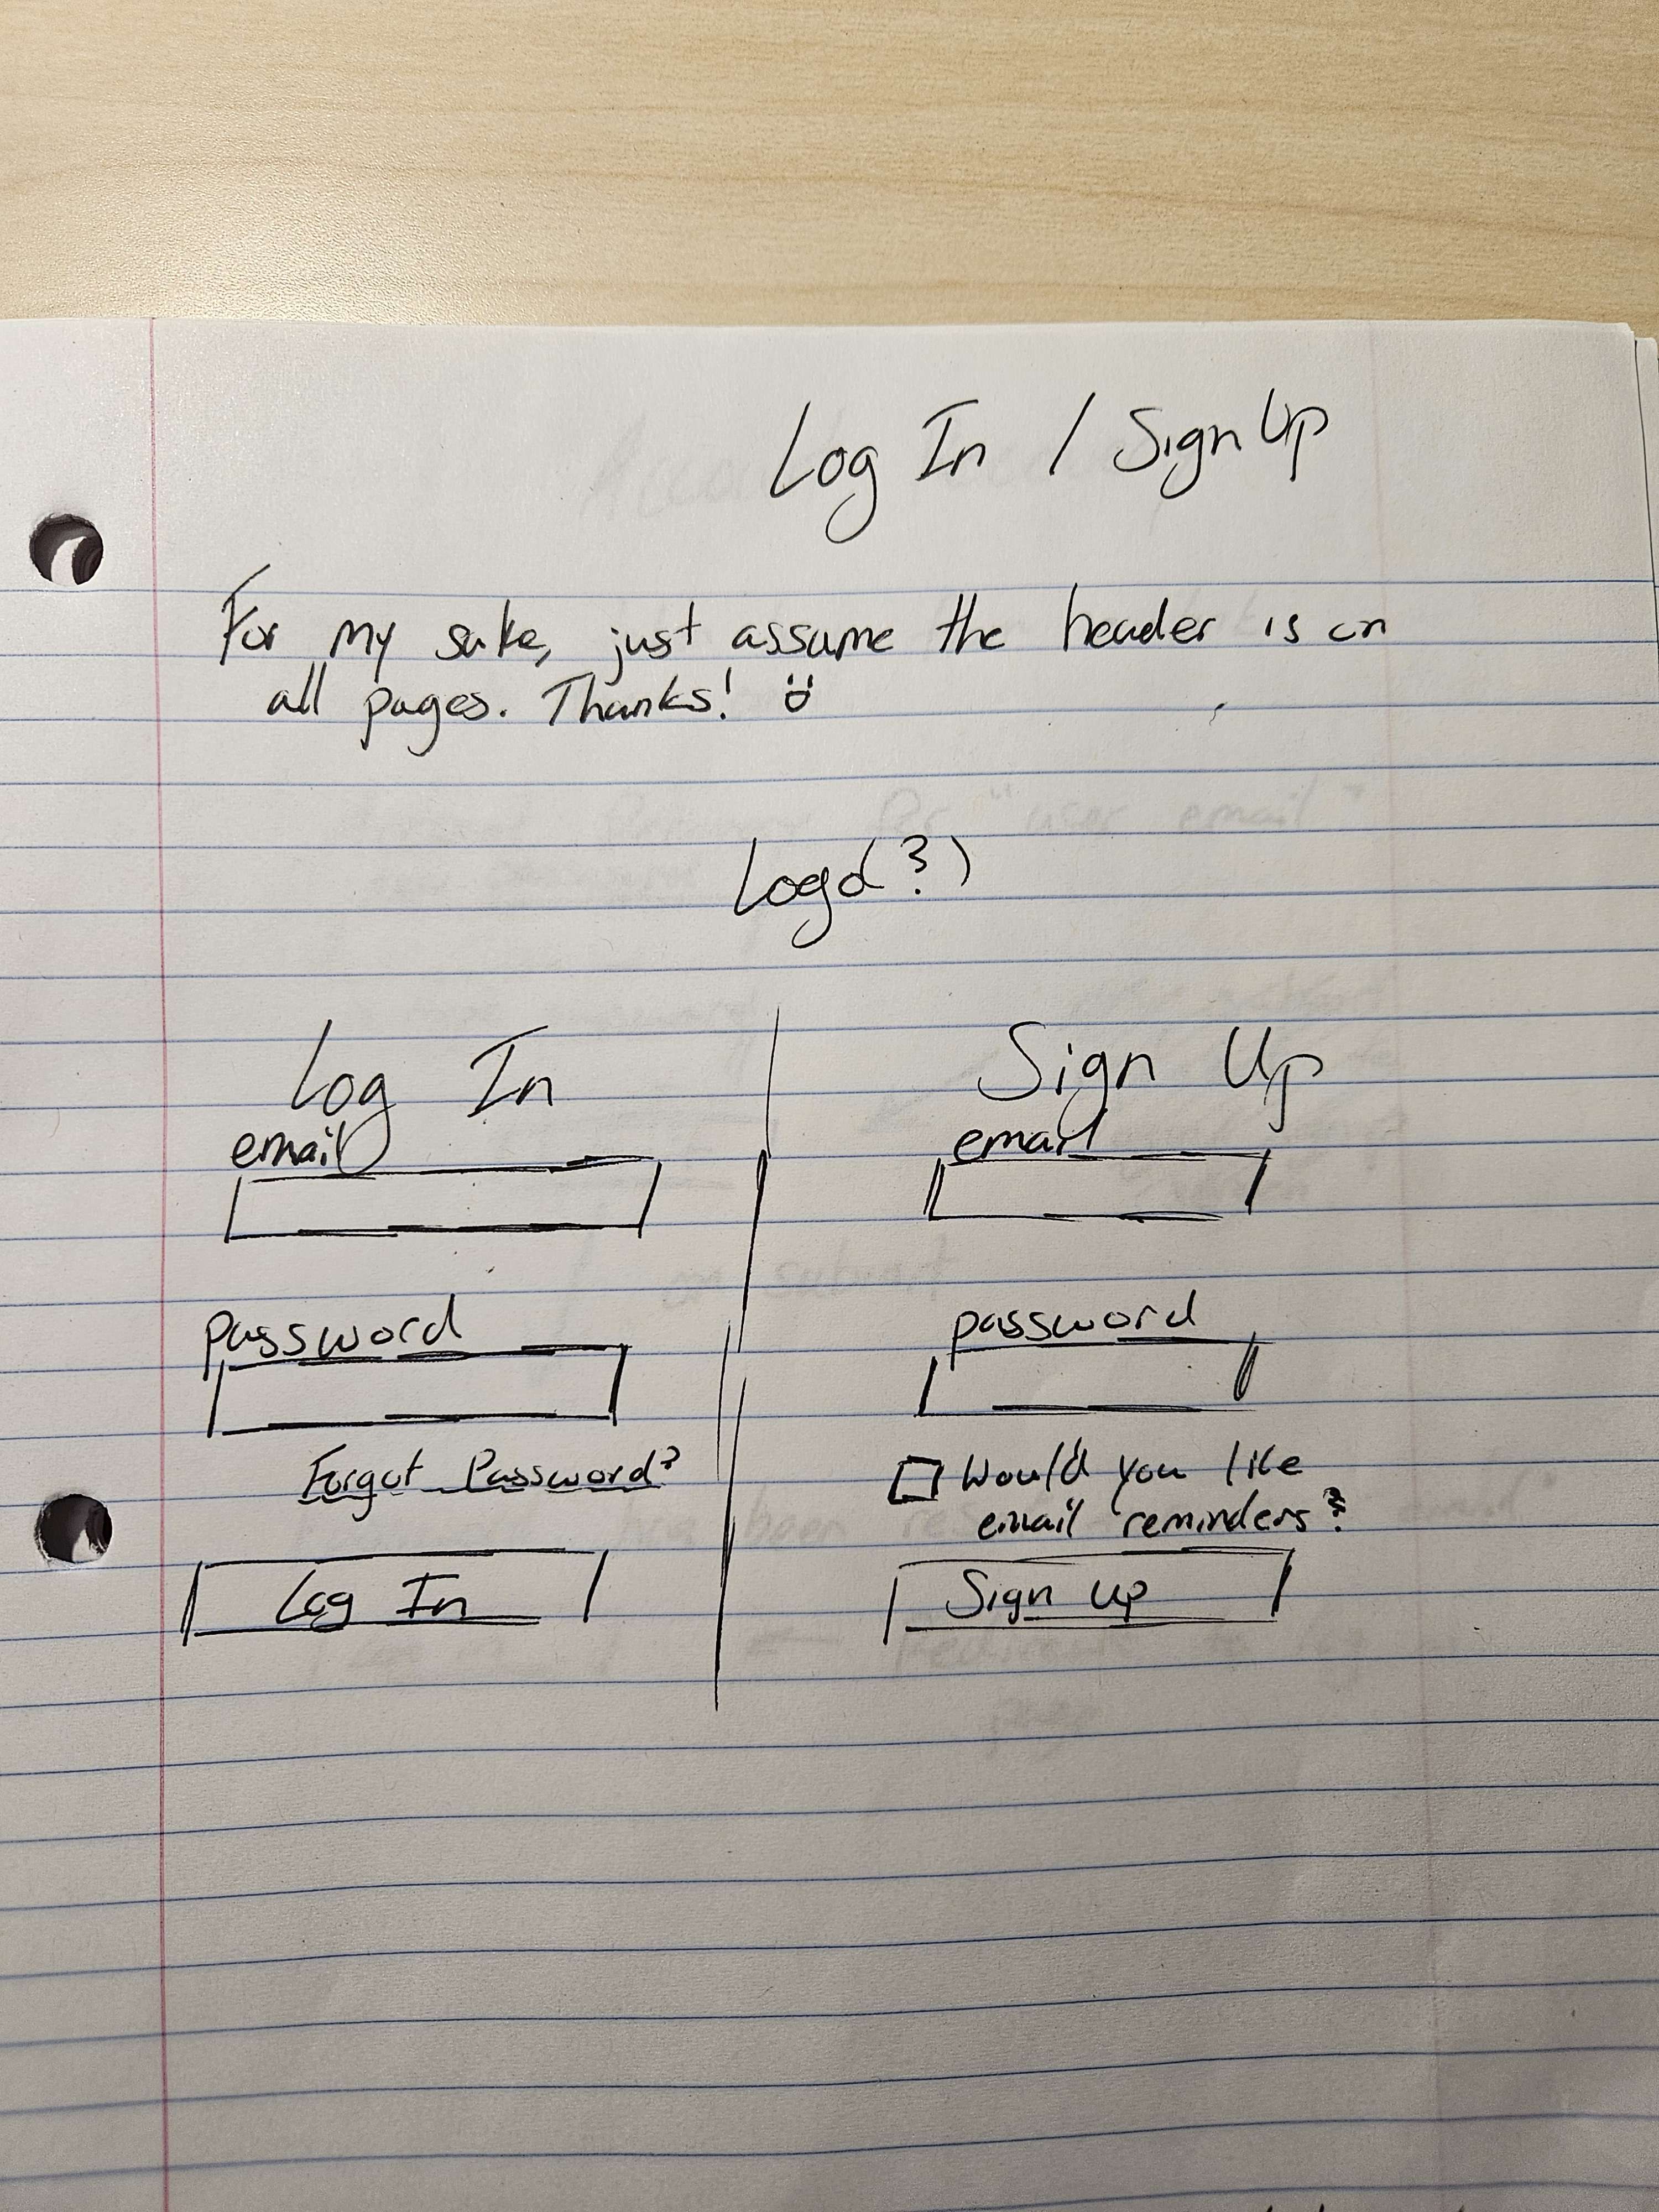 Log In / Sign Up
For my sake, just assume the header is on
all pages. Thanks!
Logo(?)
Log In
email
password
Forgot Password?
Log In
Sign Up
email
password
Would you like
email reminders?
Sign up